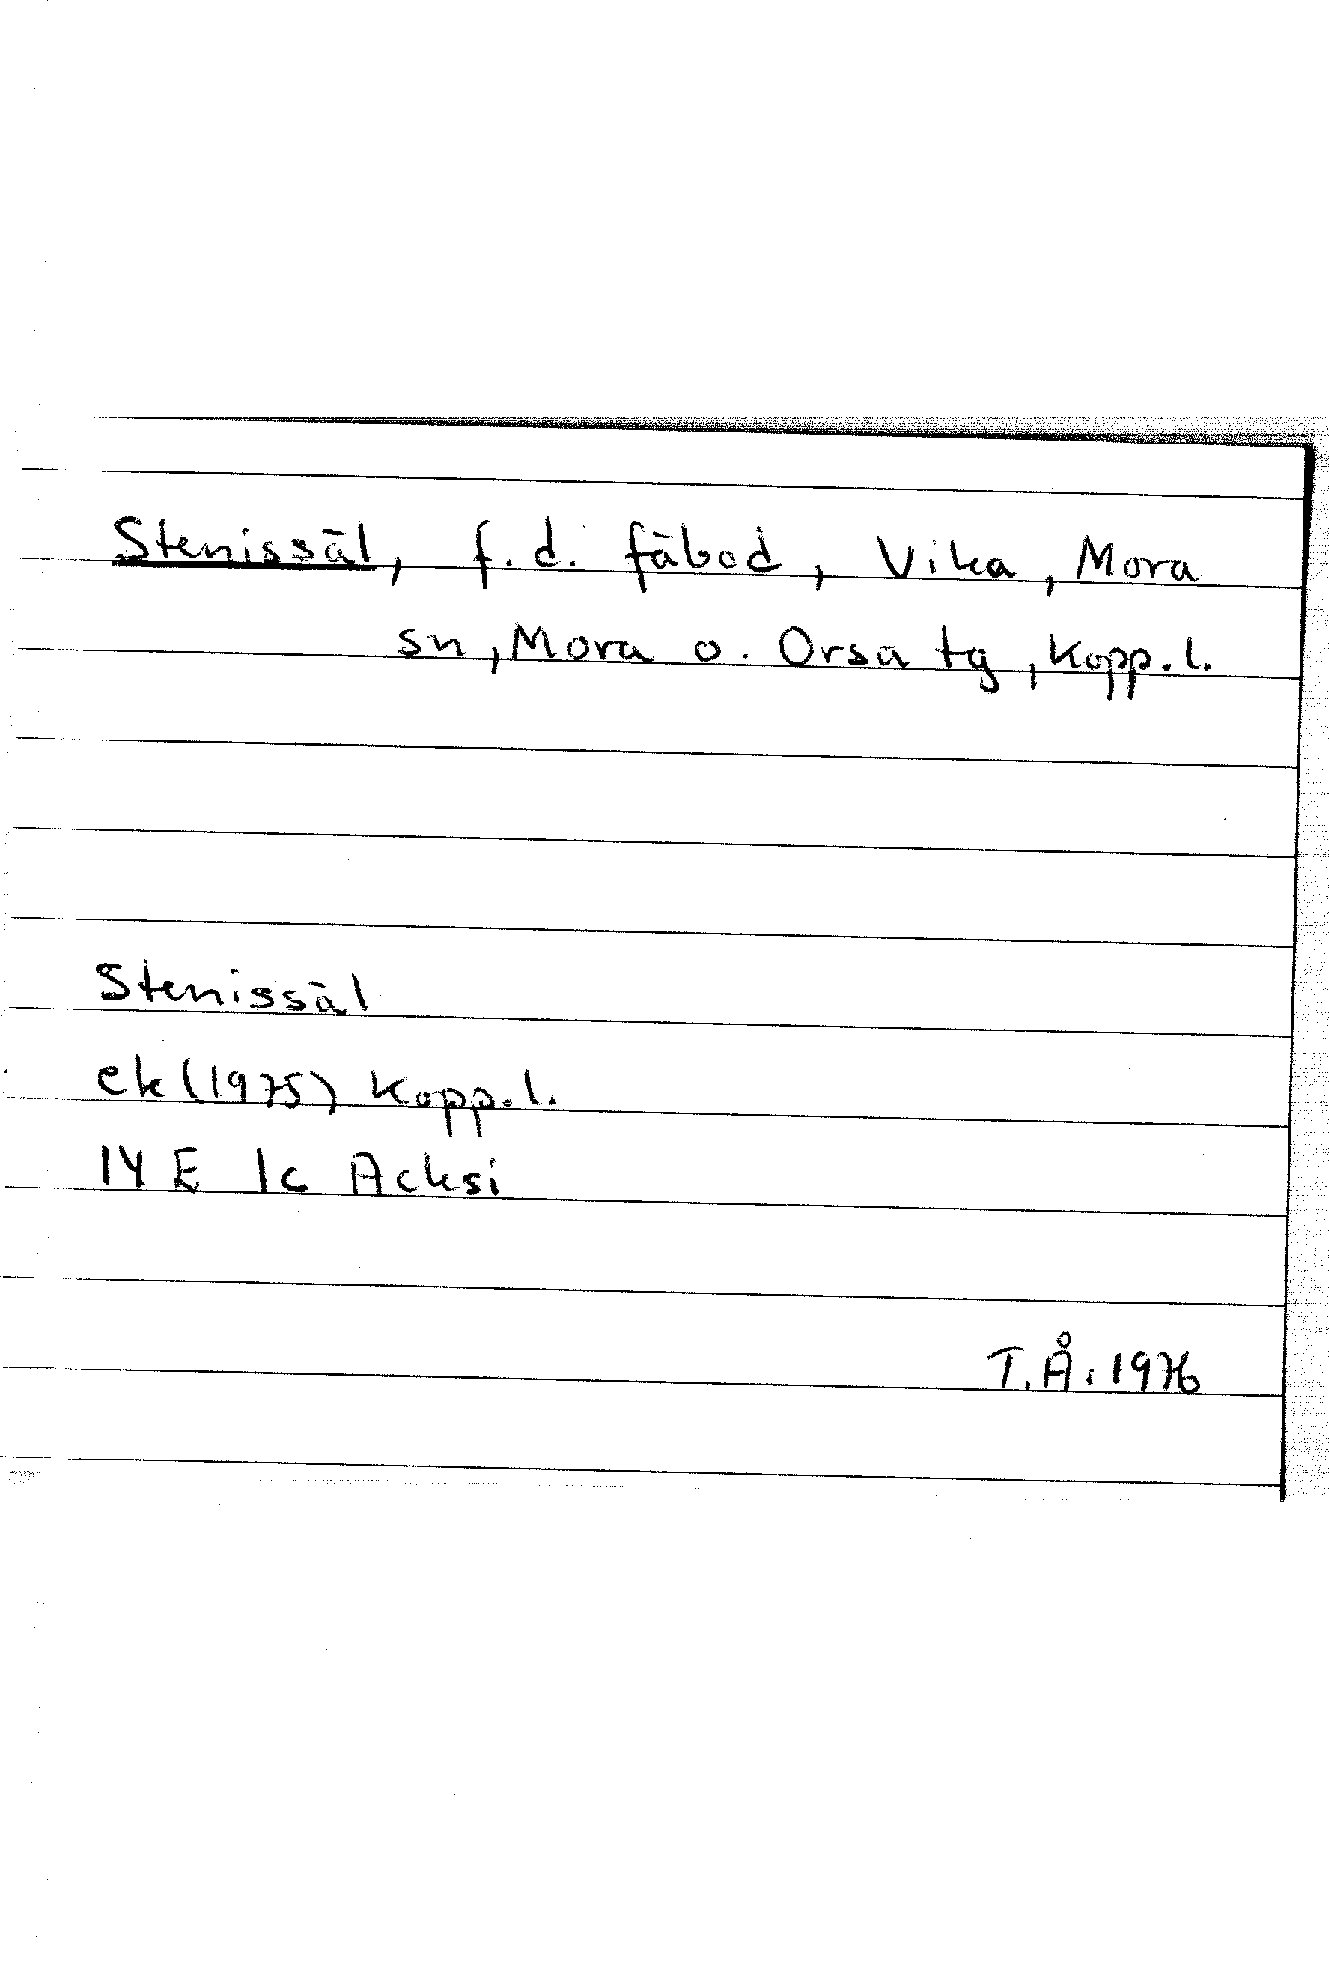 Stenissäl, f.d. fäbod, Vika, Mora
sn, Mora o. Orsa tg, Kopp.l.
Stenissäl
ek (1975) Kopp.l.
14 E 1c Acksi
T.Å. 1976